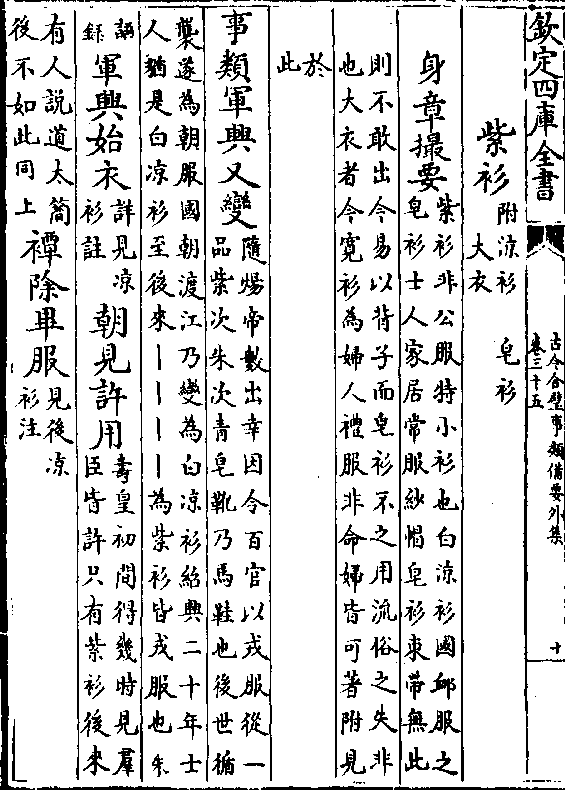 欽定四庫全書
古今合璧事類備要外集
卷三十五
十
紫衫 附涼衫 皂衫
大衣
身章撮要 紫衫非公服特小衫也白涼衫國䘏服之
皂衫士人家居常服紗㡌皂衫束帶無此
則不敢出今易以背子而皂衫不之用流俗之失非
也大衣者今寛衫為婦人禮服非命婦皆可著附見
於
此
事類軍興又變 隨煬帝數出幸因令百官以戎服從一
品紫次朱次青皂靴乃馬鞋也後世循
襲遂為朝服國朝渡江乃變為白凉衫紹興二十年士
人猶是白凉衫至後來丨丨丨丨為紫衫皆戎服也朱
語
錄 軍興始衣 詳見凉
衫註 朝見許用 壽皇初間得幾時見羣
臣皆許只有紫衫後來
有人説道太簡
後不如此同上 禫除畢服 見後凉
衫注